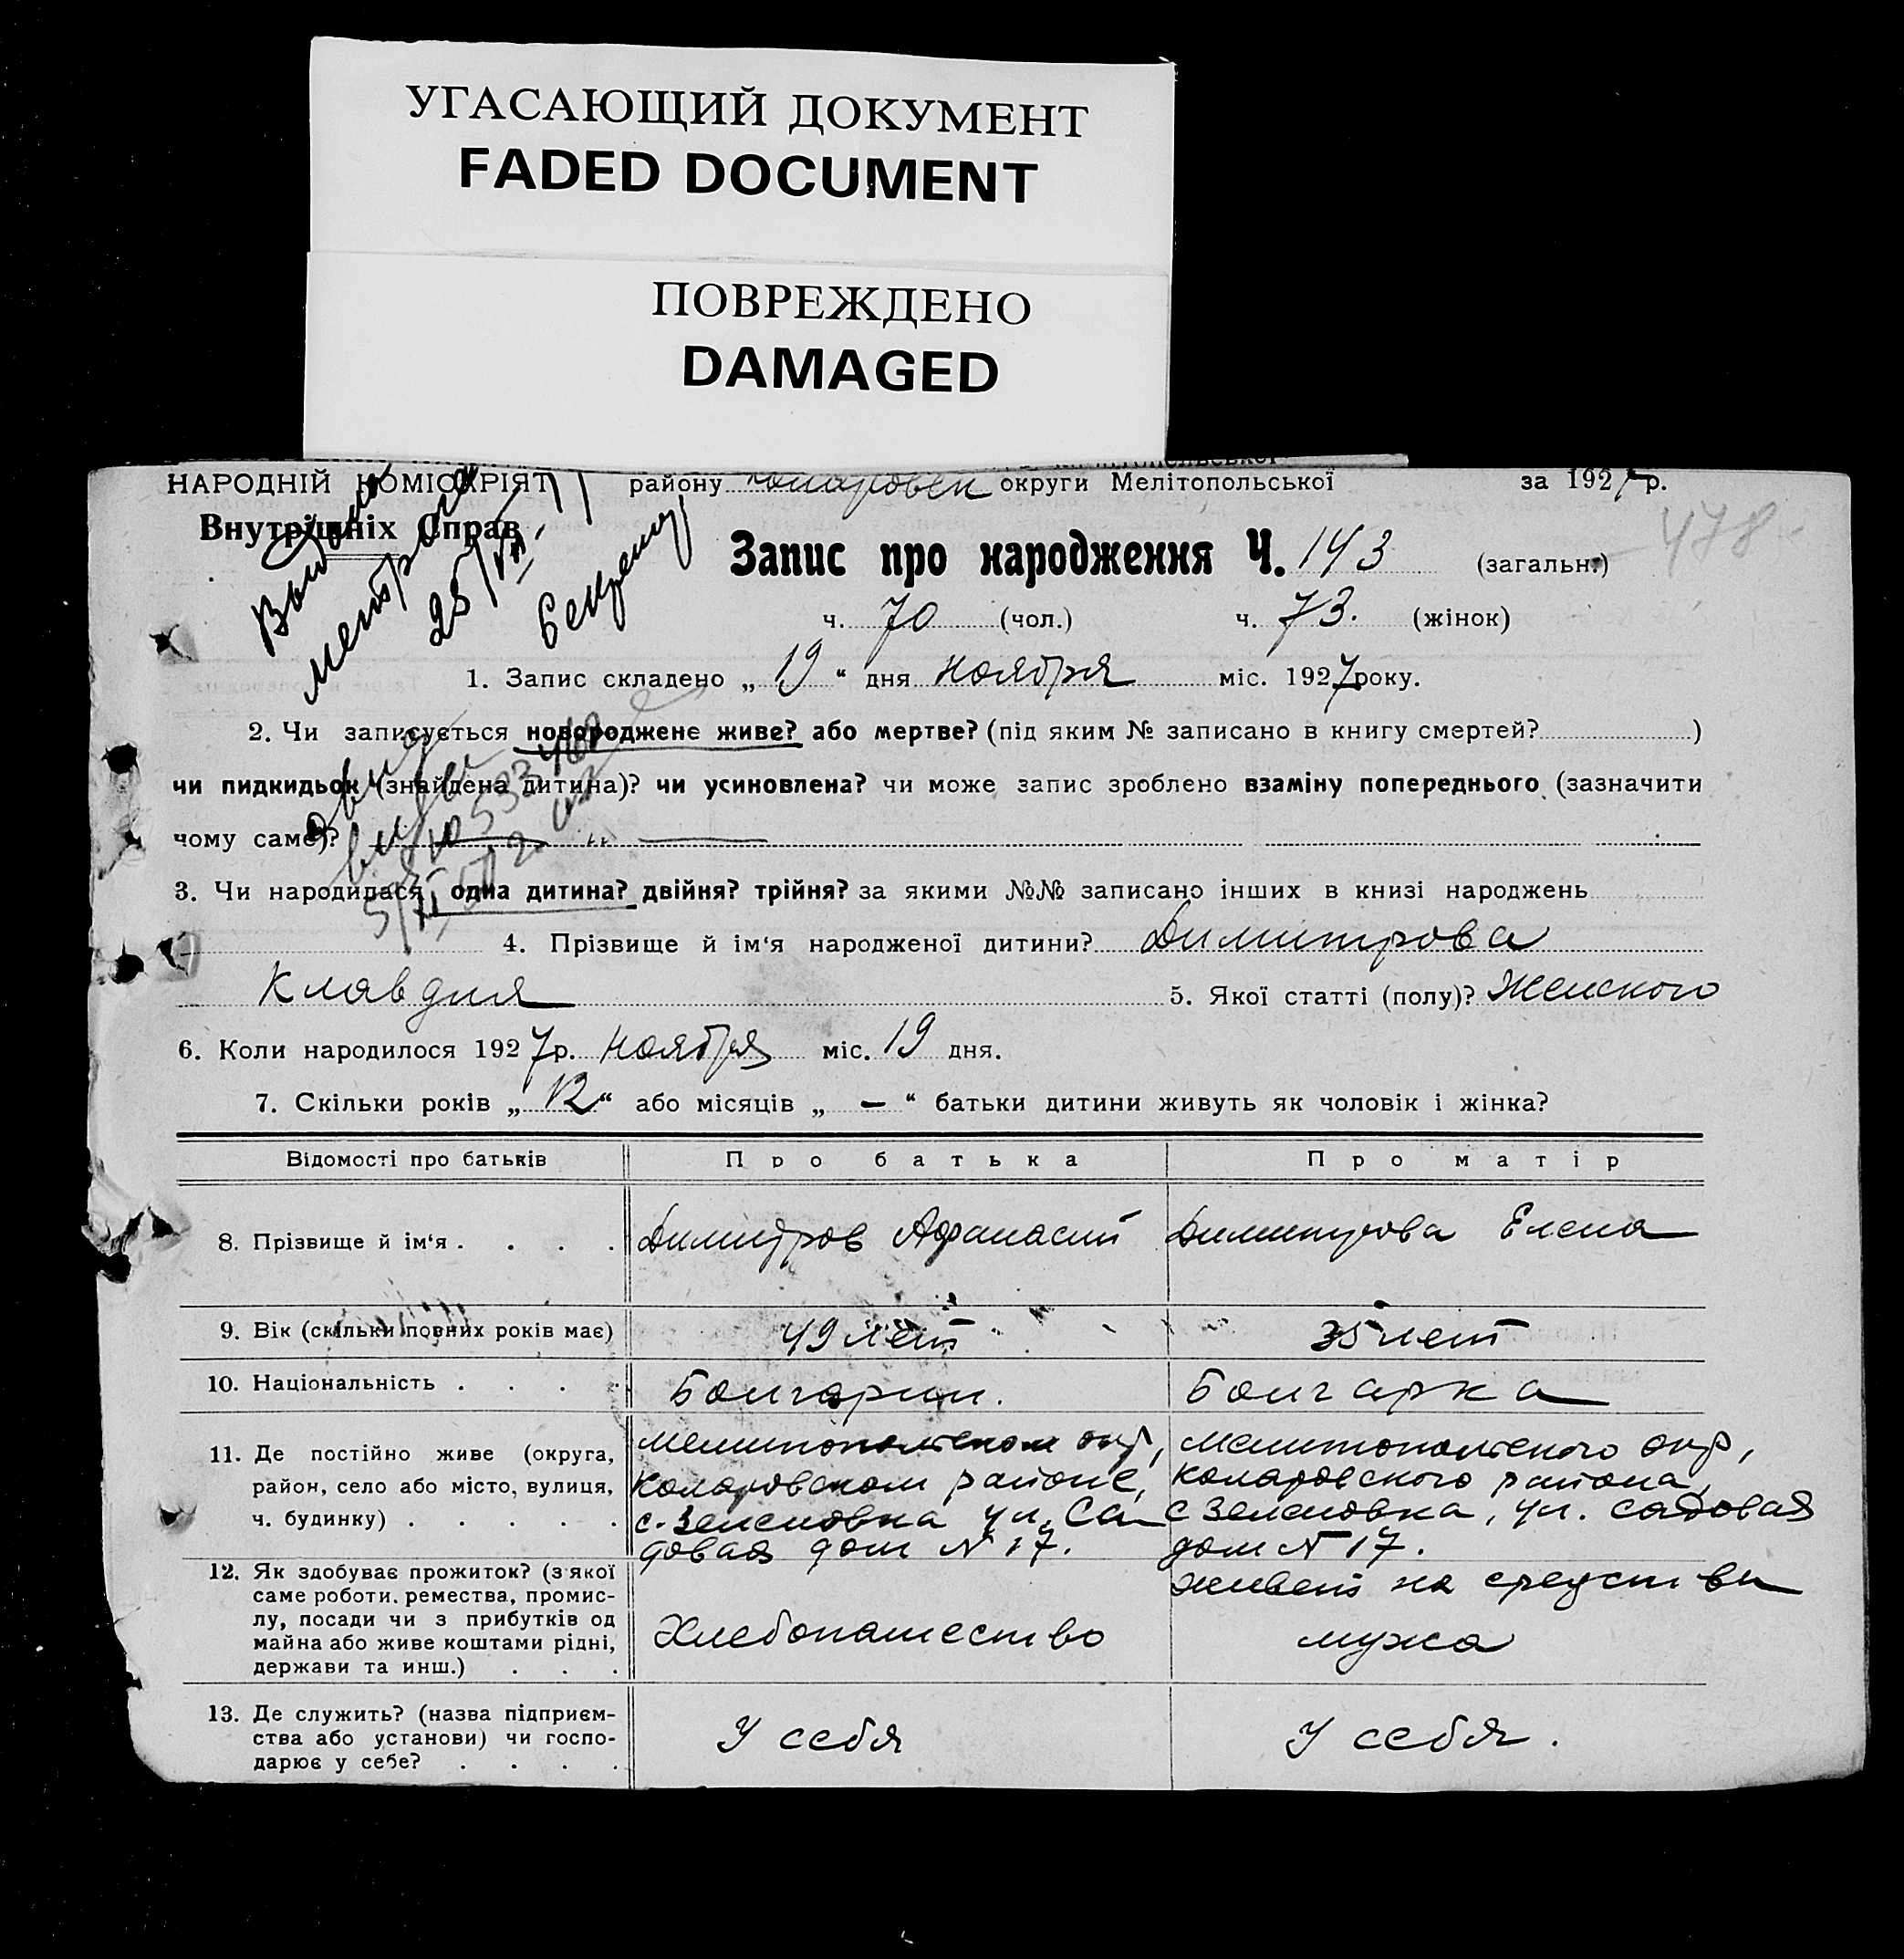 УГАСАЮЩИЙ ДОКУМЕНТ
FADED DOCUMENT
ПОВРЕЖДЕНО
DAMAGED
НАРОДНІЙ КОМІСАРІЯТ району округи Мелітопольської за 1927 р.
Внутрішніх Справ
478
Запис про народження Ч. 143 (загальн.)
ч. 70 (чол.) ч. 73. (жінок)
1. Запис складено „ 19 “ дня ноября міс. 1927 року.
2. Чи записується новороджене живе? або мертве? (під яким № записано в книгу смертей? )
чи пидкидьок (знайдена дитина)? чи усиновлена? чи може запис зроблено взаміну попереднього (зазначити
чому саме)?
3. Чи народилася одна дитина? двійня? трійня? за якими №№ записано інших в книзі народжень
4. Прізвище й ім‘я народженої дитини? Димитрова
Клавдия 5. Якої статті (полу)? Женского
6. Коли народилося 1927 р. ноября міс. 19 дня.
7. Скільки років „ 12 “ або місяців „ — “ батьки дитини живуть як чоловік і жінка?
Відомості про батьків Про батька Про матір
8. Прізвище й ім‘я . . . . Димитров Афанасий Димитрова Елена
9. Вік (скільки повних років має) 49 лет 35 лет
10. Національність . . . . Болгарин. Болгарка
11. Де постійно живе (округа, Мелитопольском окр, Мелитопольского окр,
район, село або місто, вулиця, Комаровском районе, Комаровского района,
ч. будинку) . . . . . с. Зеленовка ул. Са- с Зеленовка, ул. Садовая
довая дом N 17. дом N 17.
12. Як здобуває прожиток? (з якої живет на средства
саме роботи, ремества, промис-
лу, посади чи з прибутків од Хлебопашество мужа
майна або живе коштами рідні,
держави та инш.) . . .
13. Де служить? (назва підприєм-
ства або установи) чи госпо- У себя У себя.
дарює у себе? . . . .
Выдана
метрика
25/VII